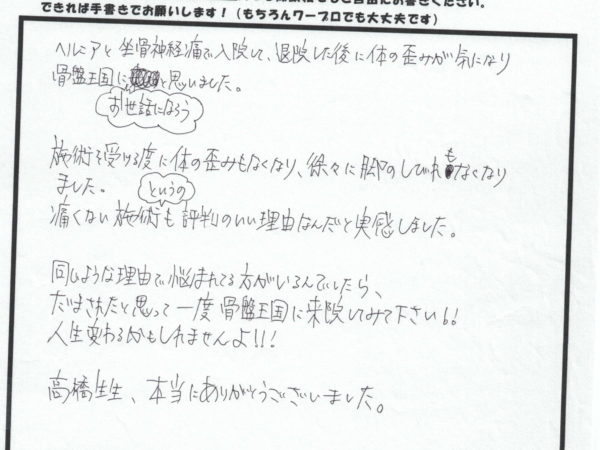 できれば手書きでお願いします！（もちろんワープロでも大丈夫です）
ヘルニアと坐骨神経痛で入院して、退院した後に体の歪みが気になり
骨盤王国にお世話になろうと思いました。
施術を受ける度に体の歪みもなくなり、徐々に脚のしびれもなくなり
ました。
痛くない施術というのも評判のいい理由なんだと実感しました。
同じような理由で悩まれてる方がいるんでしたら、
だまされたと思って一度骨盤王国に来院してみて下さい!!
人生変わるかもしれませんよ!!!
高橋先生、本当にありがとうございました。